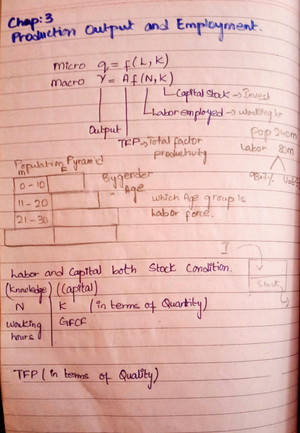 Chap:3
Production Output and Employment.
Micro q = f(L,K)
Macro Y = Af(N,K)
Capital Stock → Invest
Labor employed → working hr
Output
TFP → Total factor
productivity
Pop 240m
Labor 80m
Population Pyramid
M F
By gender
" Age
0-10
11-20
21-30
which Age group is
labor force.
Labor and Capital both Stock Condition.
(Knowledge) (Capital)
N K (in terms of Quantity)
Working GFCF
hours
I
Stock
TFP (in terms of Quality)